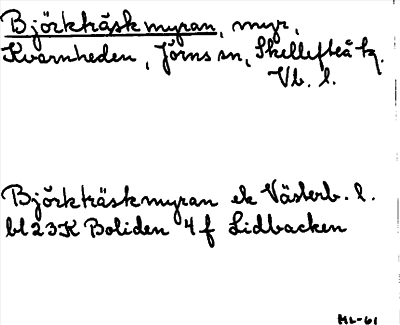 Björkträskmyran, myr,
Kvarnheden, Jörns sn, Skellefteå k,
Vb. l.
Björkträskmyran ek Västerb. l.
bl 23K Boliden 4 f Lidbacken
ML-61